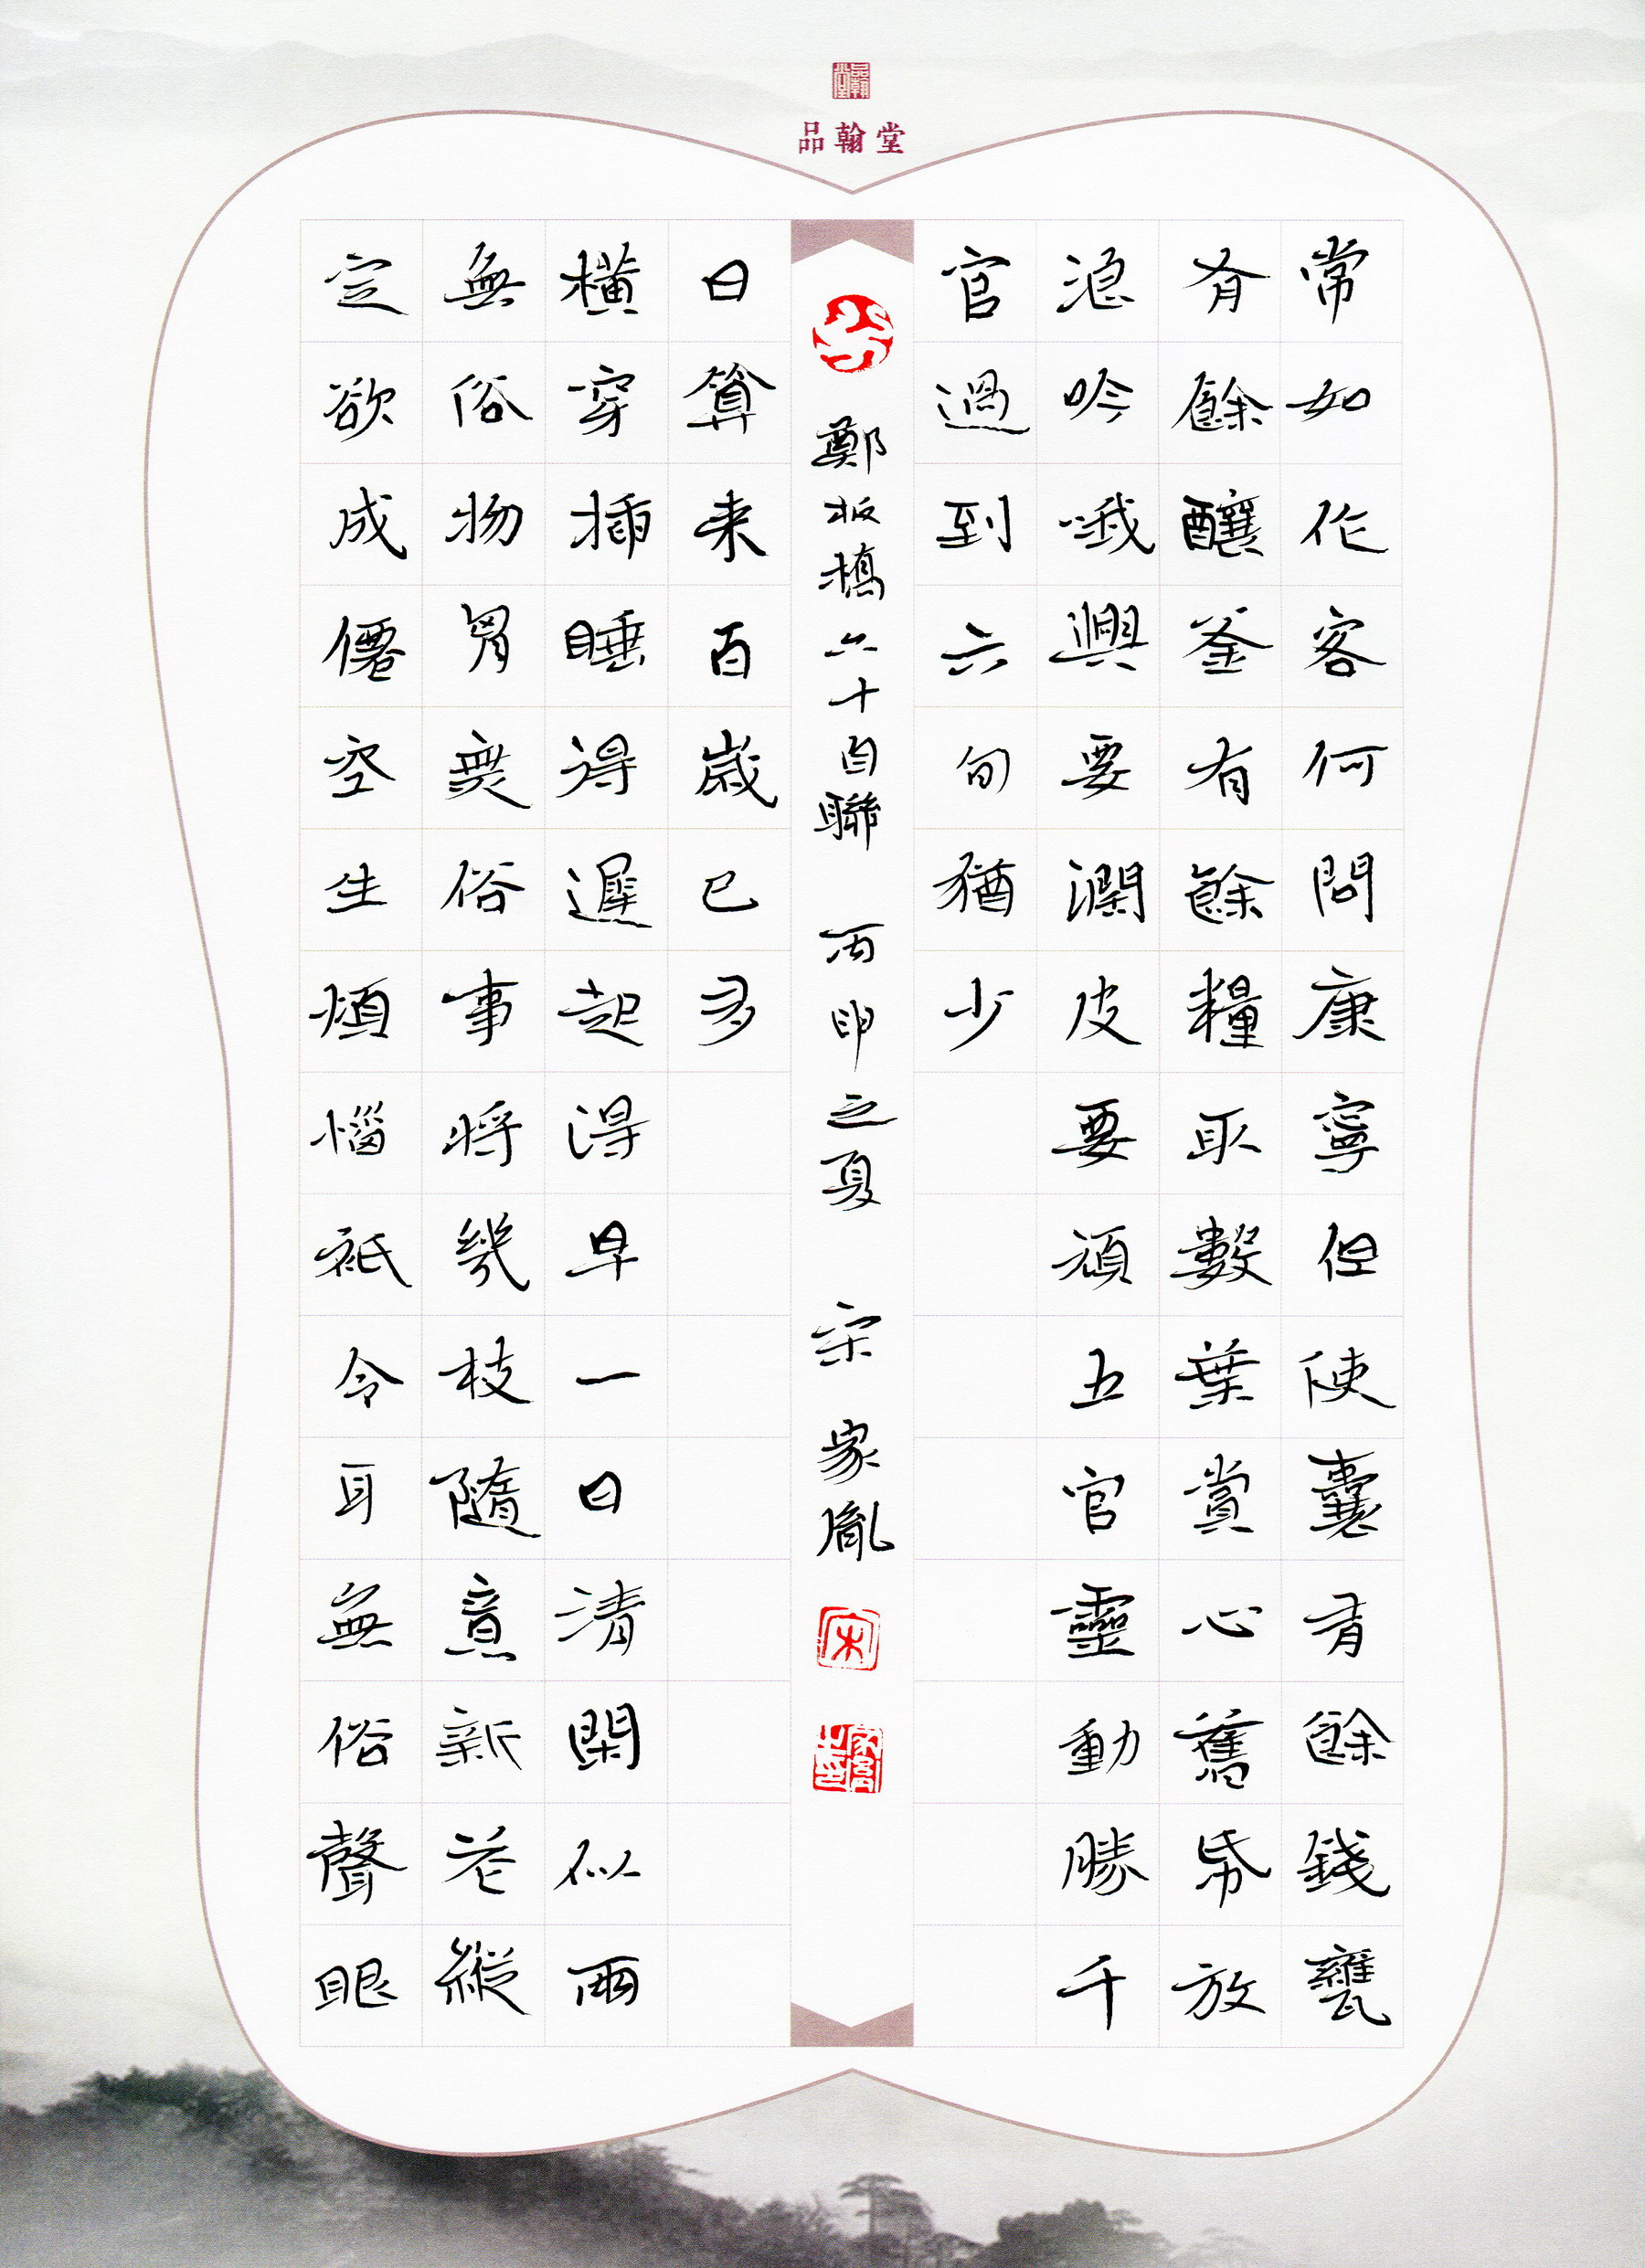 品翰堂
品翰堂
常如作客何問康寧但使囊有餘錢甕
有餘釀釜有餘糧取數葉賞心舊帋放
浪吟哦興要濶皮要頑五官靈動勝千
官過到六旬猶少
定欲成僊空生煩惱祇令耳無俗聲眼
無俗物胷無俗事將幾枝隨意新花縱
橫穿插睡得遲起得早一日清閑似兩
日算来百歲已多
鄭板橋六十自聯 丙申之夏 宋家胤
宋